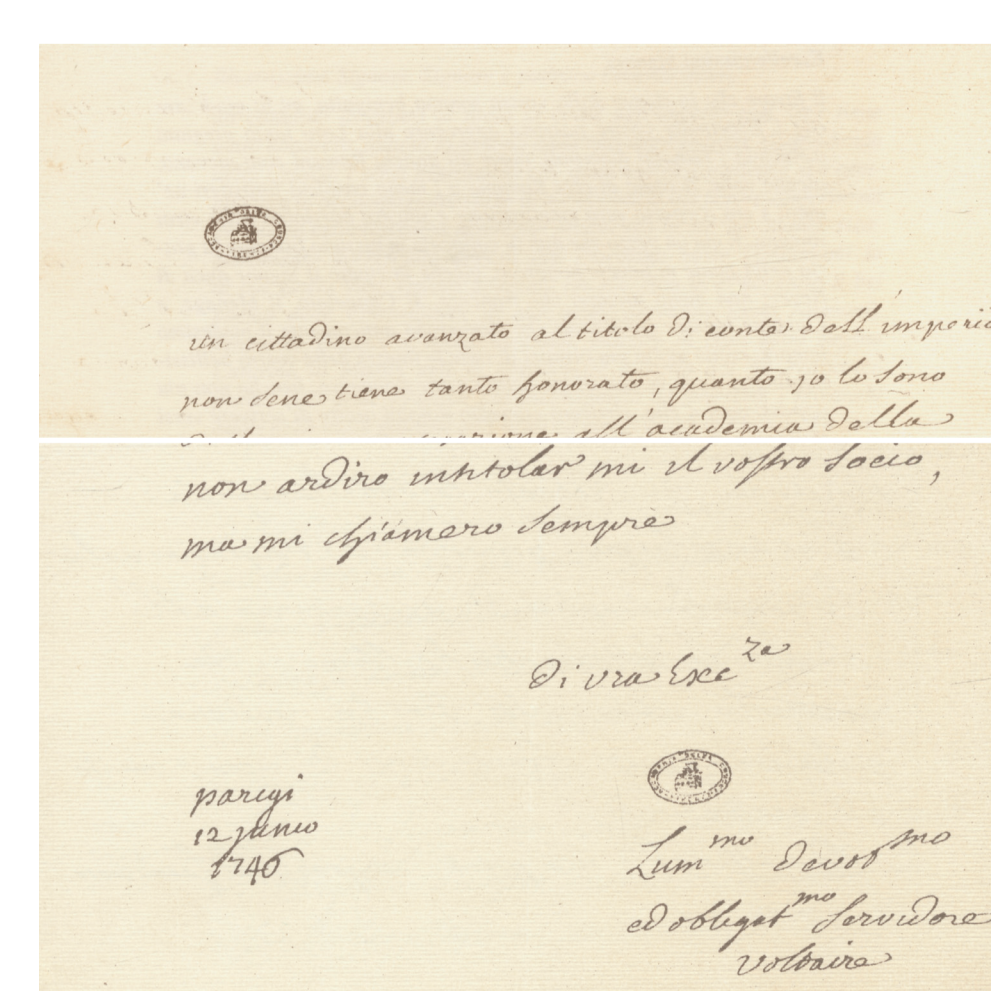 ACCADEMIA DELLA CRUSCA
un cittadino avanzato al titolo di conte dell' imperio
non sene tiene tanto honorato, quanto jo lo sono
all' academia della
non ardiro intitolar mi il vostro socio,
ma mi chiamero sempre
di vra Exc za
ACCADEMIA DELLA CRUSCA
parigi
12 junio
1746
mo devot mo
ed obligat mo servidore
voltaire